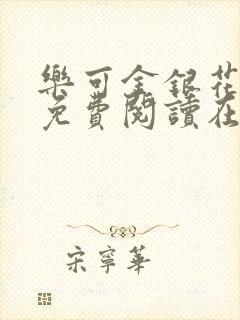 樂可金銀花
免費閱讀在
宋寧華